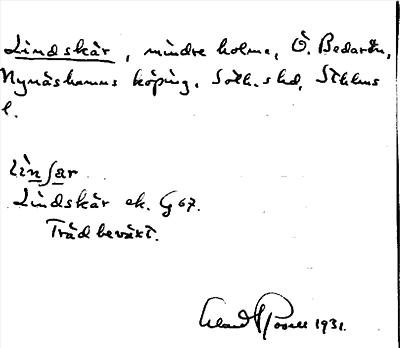 Lindskär, mindre holme, Ö. Bedarön,
Nynäshamns köping, Soth. skd, Sthlms
l.
Lìnʃar
Lindskär ek. G 67.
Trädbeväxt.
1931.